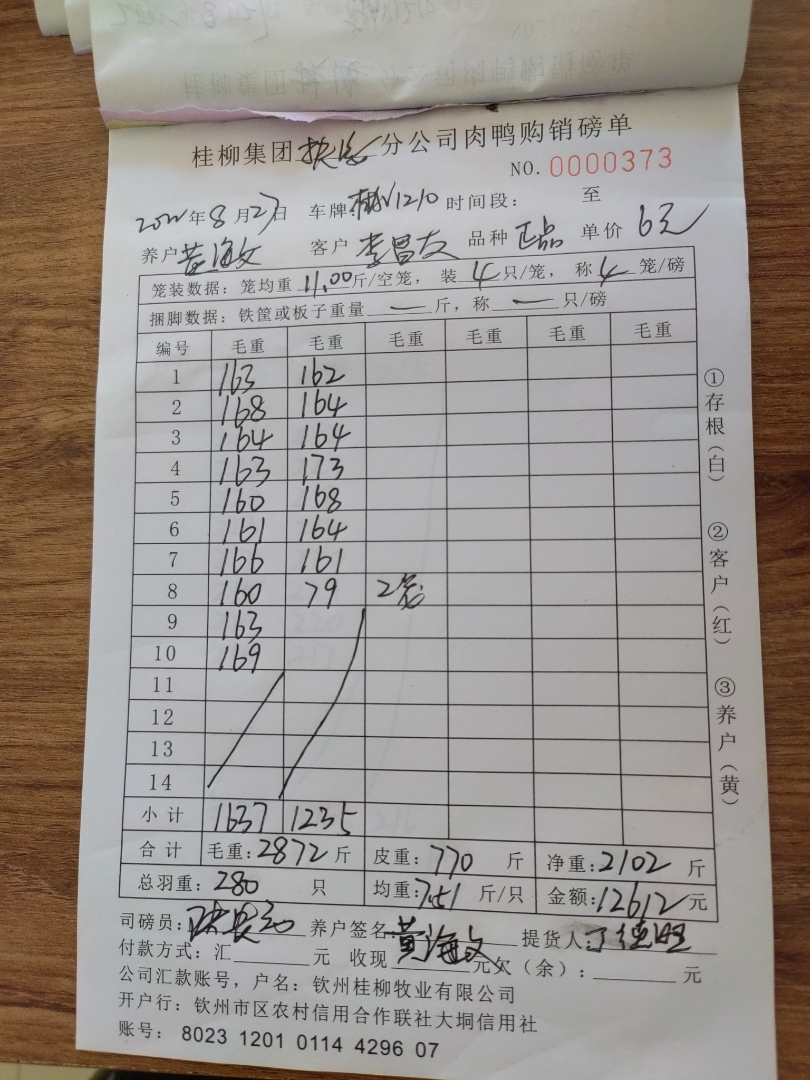 桂柳集团 分公司肉鸭购销磅单
NO. 0000373
2022年8月27日 车牌: 1210 时间段: 至
养户 黄海文 客户 李昌友 品种 正品 单价 6元
笼装数据: 笼均重 11.00 斤/空笼, 装 4 只/笼, 称 4 笼/磅
捆脚数据: 铁筐或板子重量 — 斤, 称 — 只/磅
编号 毛重 毛重 毛重 毛重 毛重 毛重
1 163 162
2 168 164
3 164 164
4 163 173
5 160 168
6 161 164
7 166 161
8 160 79 2笼
9 163
10 169
11
12
13
14
小计 1637 1235
合计 毛重: 2872 斤 皮重: 770 斤 净重: 2102 斤
总羽重: 280 只 均重: 7.51 斤/只 金额: 12612 元
司磅员: 养户签名: 黄海文 提货人: 丁德旺
付款方式: 汇 元 收现 元欠(余): 元
公司汇款账号, 户名: 钦州桂柳牧业有限公司
开户行: 钦州市区农村信用合作联社大垌信用社
账号: 8023 1201 0114 4296 07
①存根(白)
②客户(红)
③养户(黄)